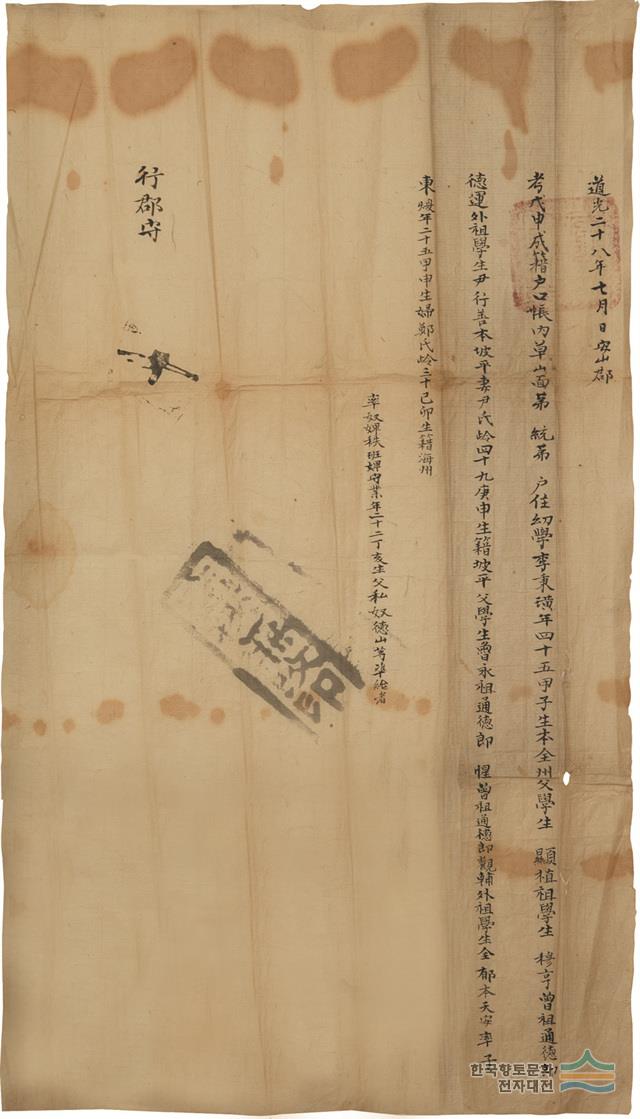 道光二十八年七月日安山郡
考戊申成籍戶口帳內草山面第 統第 戶住幼學李秉漢年四十五甲子生本全州父學生 顯植祖學生 穆亨曾祖通德郎
德運外祖學生尹行善本坡平妻尹氏齡四十九庚申生籍坡平父學生曾永祖通德郎 惺曾祖通德郎觀輔外祖學生全 郁本天安率子
東煥年二十五甲申生婦鄭氏齡三十己卯生籍海州
率奴婢秩班婢守業年二十二丁亥生父私奴德山等準給者
行郡守
한국향토문화
전자대전